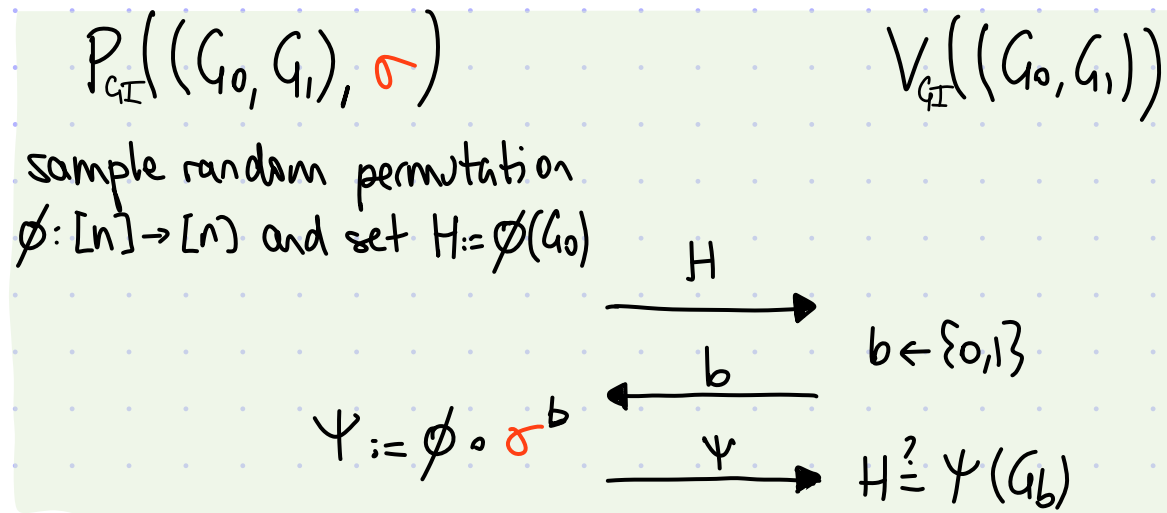 P_GI((G₀, G₁), σ)
V_GI((G₀, G₁))
sample random permutation
ø: [n] → [n] and set H := ø(G₀)
H
b ← {0,1}
b
Ψ := ø ∘ σᵇ
Ψ
H ≟ Ψ(G_b)